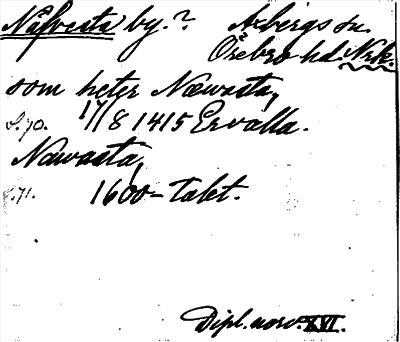 Näfvesta by.? Axbergs sn.
Örebro hd. Nrk.
som heter Næwasta,
s.70. 17/8 1415 Ervalla.
Nawasta,
s.71. 1600-talet.
Dipl. norv. XVI.